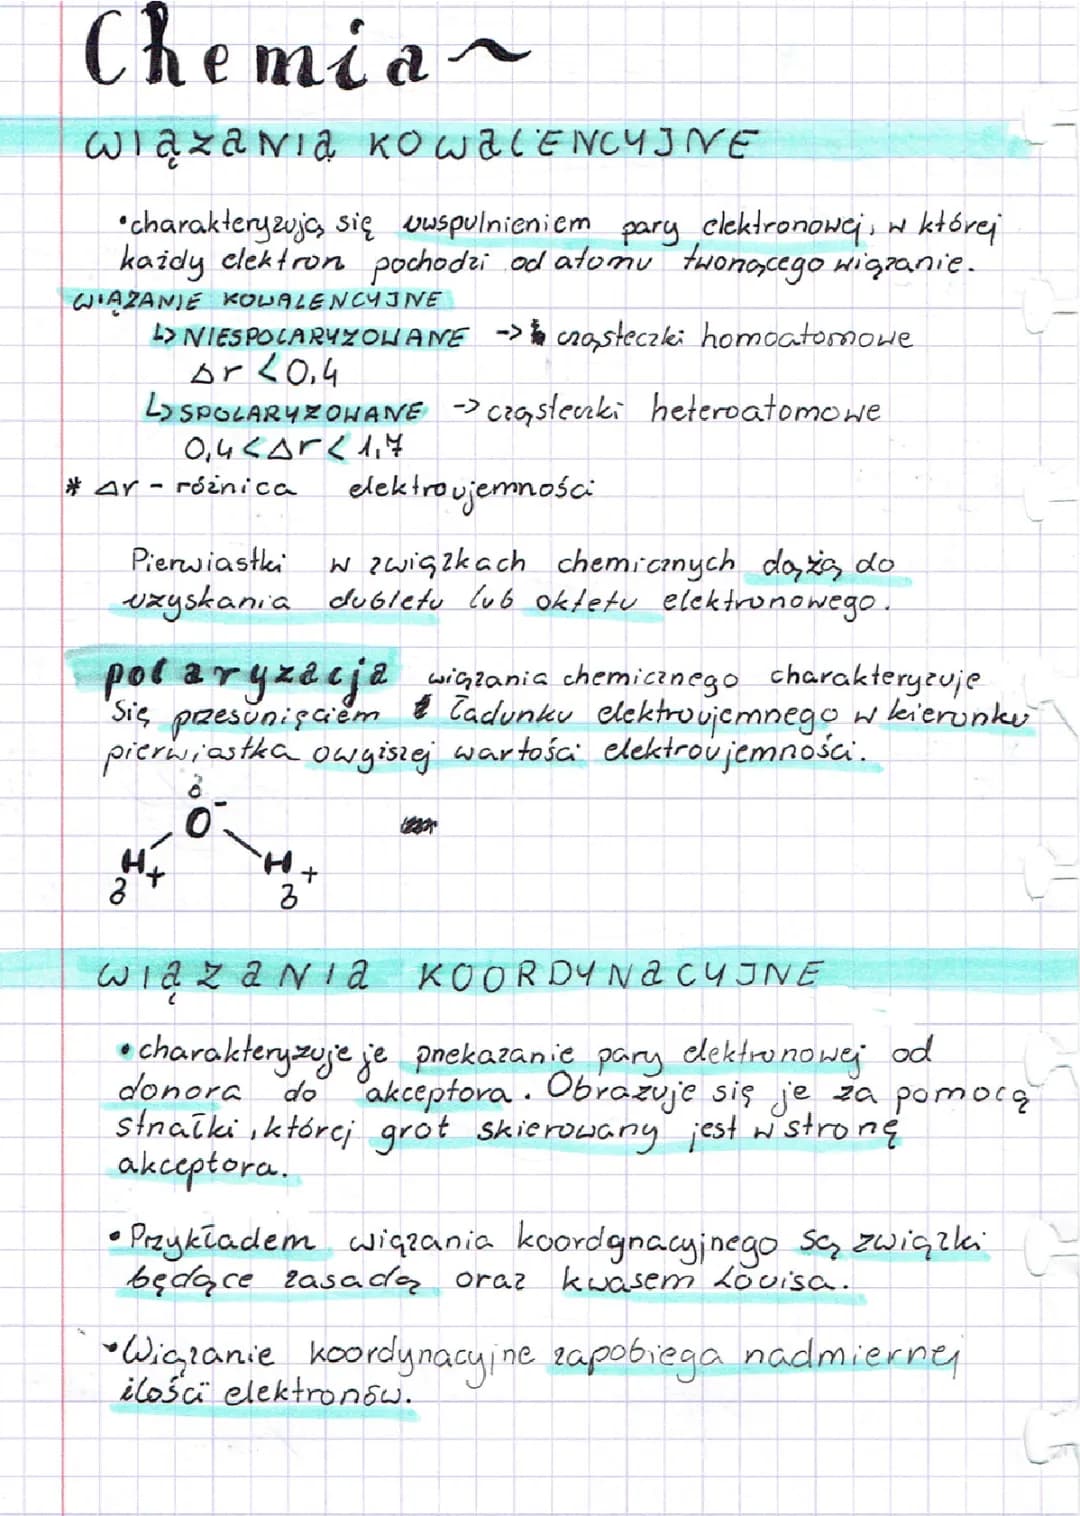 Chemia~
WIĄZANIA KOWALENCYJNE
•charakteryzują się uwspulnieniem pary elektronowej, w której
każdy elektron pochodzi od atomu tworzącego wiązanie.
WIĄZANIE KOWALENCYJNE
↳ NIESPOLARYZOWANE -> cząsteczki homoatomowe
Δr < 0,4
↳ SPOLARYZOWANE -> cząsteczki heteroatomowe
0,4 < Δr < 1,7
* Δr - różnica elektroujemności
Pierwiastki w związkach chemicznych dążą do
uzyskania dubletu lub oktetu elektronowego.
polaryzacja wiązania chemicznego charakteryzuje
się przesunięciem ładunku elektroujemnego w kierunku
pierwiastka o wyższej wartości elektroujemności.
δ
O⁻
H+ H+
δ δ
WIĄZANIA KOORDYNACYJNE
•charakteryzuje je przekazanie pary elektronowej od
donora do akceptora. Obrazuje się je za pomocą
strzałki, której grot skierowany jest w stronę
akceptora.
•Przykładem wiązania koordynacyjnego są związki
będące zasadą oraz kwasem Louisa.
•Wiązanie koordynacyjne zapobiega nadmiernej
ilości elektronów.